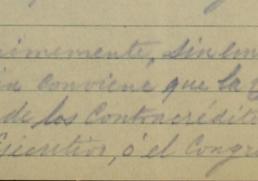 nimemente, sin em
conviene que la
de los Contracrédito
Ejecutivo, ó el Congr